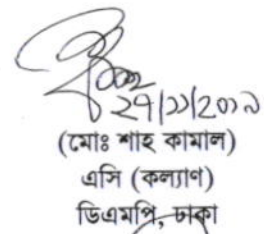 ২৭/১১/২০১৯
(মোঃ শাহ কামাল)
এসি (কল্যাণ)
ডিএমপি, ঢাকা